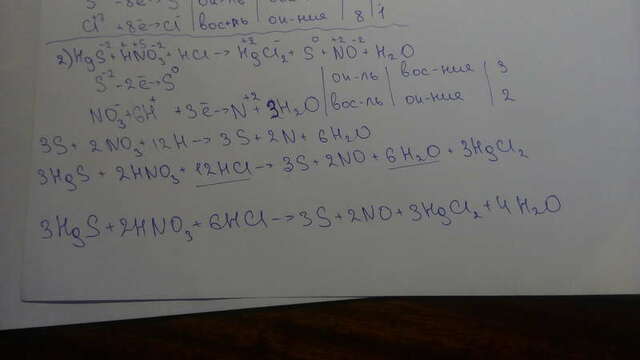 +8ē→Cl⁻ | вос-ль | ок-ние | 8 | 1
2) HgS⁻² + HNO₃ + HCl → HgCl₂ + S⁰ + NO + H₂O
S⁻² - 2ē → S⁰ | ок-ль | вос-ние | 3
NO₃⁻ + 6H⁺ + 3ē → N⁺² + 3H₂O | вос-ль | ок-ние | 2
3S + 2NO₃ + 12H → 3S + 2N + 6H₂O
3HgS + 2HNO₃ + 12HCl → 3S + 2NO + 6H₂O + 3HgCl₂
3HgS + 2HNO₃ + 6HCl → 3S + 2NO + 3HgCl₂ + 4H₂O